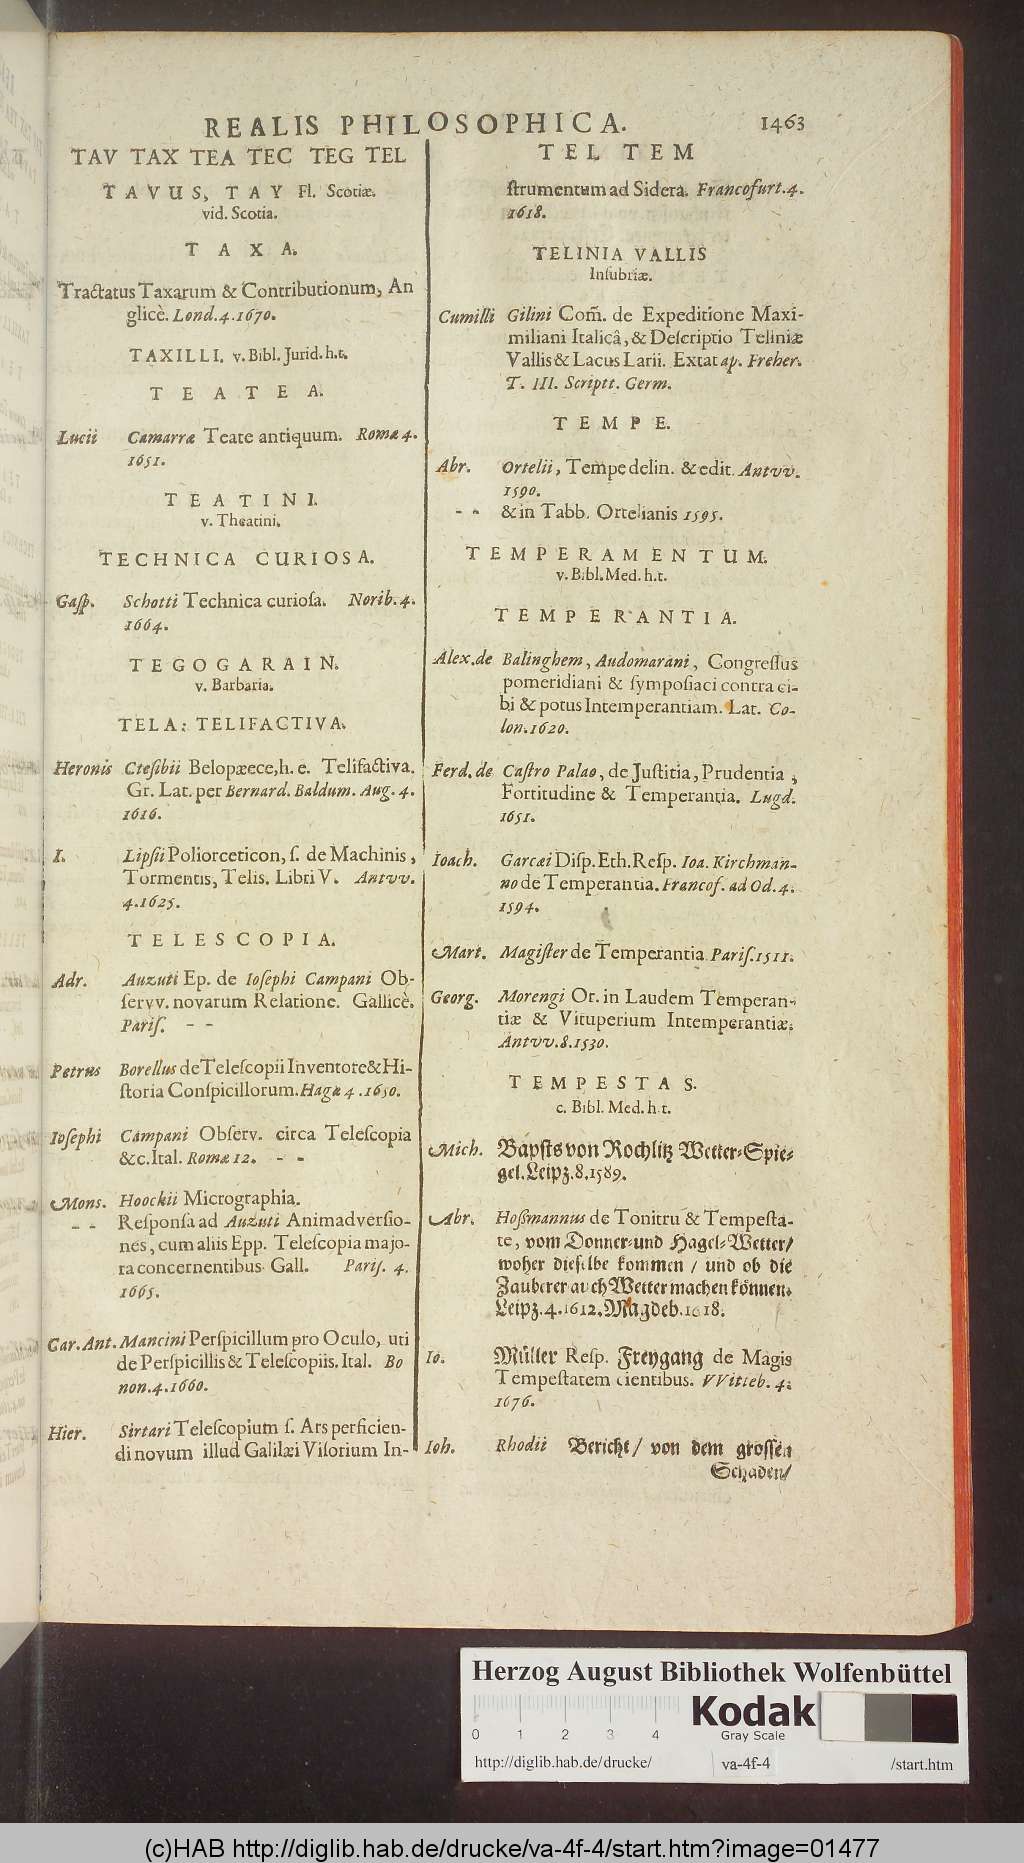 REALIS PHILOSOPHICA. 1463
TAV TAX TEA TEC TEG TEL
TAVUS, TAY Fl. Scotiæ.
vid. Scotia.
TAXA.
Tractatus Taxarum & Contributionum, An
glicè. Lond. 4. 1670.
TAXILLI. v. Bibl. Jurid. h. t.
TEATEA.
Lucii Camarræ Teate antiquum. Romæ 4.
1651.
TEATINI.
v. Theatini.
TECHNICA CURIOSA.
Gasp. Schotti Technica curiosa. Norib. 4.
1664.
TEGOGARAIN.
v. Barbaria.
TELA: TELIFACTIVA.
Heronis Ctesibii Belopæece, h. e. Telifactiva.
Gr. Lat. per Bernard. Baldum. Aug. 4.
1616.
I. Lipsii Poliorceticon, s. de Machinis,
Tormentis, Telis. Libri V. Antvv.
4. 1625.
TELESCOPIA.
Adr. Auzuti Ep. de Iosephi Campani Ob-
servv. novarum Relatione. Gallicè.
Paris. - -
Petrus Borellus de Telescopii Inventore & Hi-
storia Conspicillorum. Hagæ 4. 1650.
Iosephi Campani Observ. circa Telescopia
&c. Ital. Romæ 12. - -
Mons. Hoockii Micrographia.
- - Responsa ad Auzuti Animadversio-
nes, cum aliis Epp. Telescopia majo-
ra concernentibus. Gall. Paris. 4.
1665.
Car. Ant. Mancini Perspicillum pro Oculo, uti
de Perspicillis & Telescopiis. Ital. Bo
non. 4. 1660.
Hier. Sirtari Telescopium s. Ars perficien-
di novum illud Galilæi Visorium In-
TEL TEM
strumentum ad Sidera. Francofurt. 4.
1618.
TELINIA VALLIS
Insubriæ.
Cumilli Gilini Com̃. de Expeditione Maxi-
miliani Italicâ, & Descriptio Teliniæ
Vallis & Lacus Larii. Extat ap. Freher.
T. III. Scriptt. Germ.
TEMPE.
Abr. Ortelii, Tempe delin. & edit. Antvv.
1590.
- - & in Tabb. Ortelianis 1595.
TEMPERAMENTUM.
v. Bibl. Med. h. t.
TEMPERANTIA.
Alex. de Balinghem, Audomarani, Congressus
pomeridiani & symposiaci contra ci-
bi & potus Intemperantiam. Lat. Co-
lon. 1620.
Ferd. de Castro Palao, de Justitia, Prudentia,
Fortitudine & Temperantia. Lugd.
1651.
Ioach. Garcæi Disp. Eth. Resp. Ioa. Kirchman-
no de Temperantia. Francof. ad Od. 4.
1594.
Mart. Magister de Temperantia Paris. 1511.
Georg. Morengi Or. in Laudem Temperan-
tiæ & Vituperium Intemperantiæ.
Antvv. 8. 1530.
TEMPESTAS.
c. Bibl. Med. h. t.
Mich. Bapsts von Rochlitz Wetter-Spie-
gel. Leipz. 8. 1589.
Abr. Hoßmannus de Tonitru & Tempesta-
te, vom Donner- und Hagel-Wetter/
woher dieselbe kommen / und ob die
Zauberer auch Wetter machen können.
Leipz. 4. 1612. Magdeb. 1618.
Io. Müller Resp. Freygang de Magis
Tempestatem cientibus. VVitteb. 4.
1676.
Ioh. Rhodii Bericht/ von dem grossen
Schaden/
Herzog August Bibliothek Wolfenbüttel
0 1 2 3 4 Kodak
Gray Scale
http://diglib.hab.de/drucke/ va-4f-4 /start.htm
(c)HAB http://diglib.hab.de/drucke/va-4f-4/start.htm?image=01477